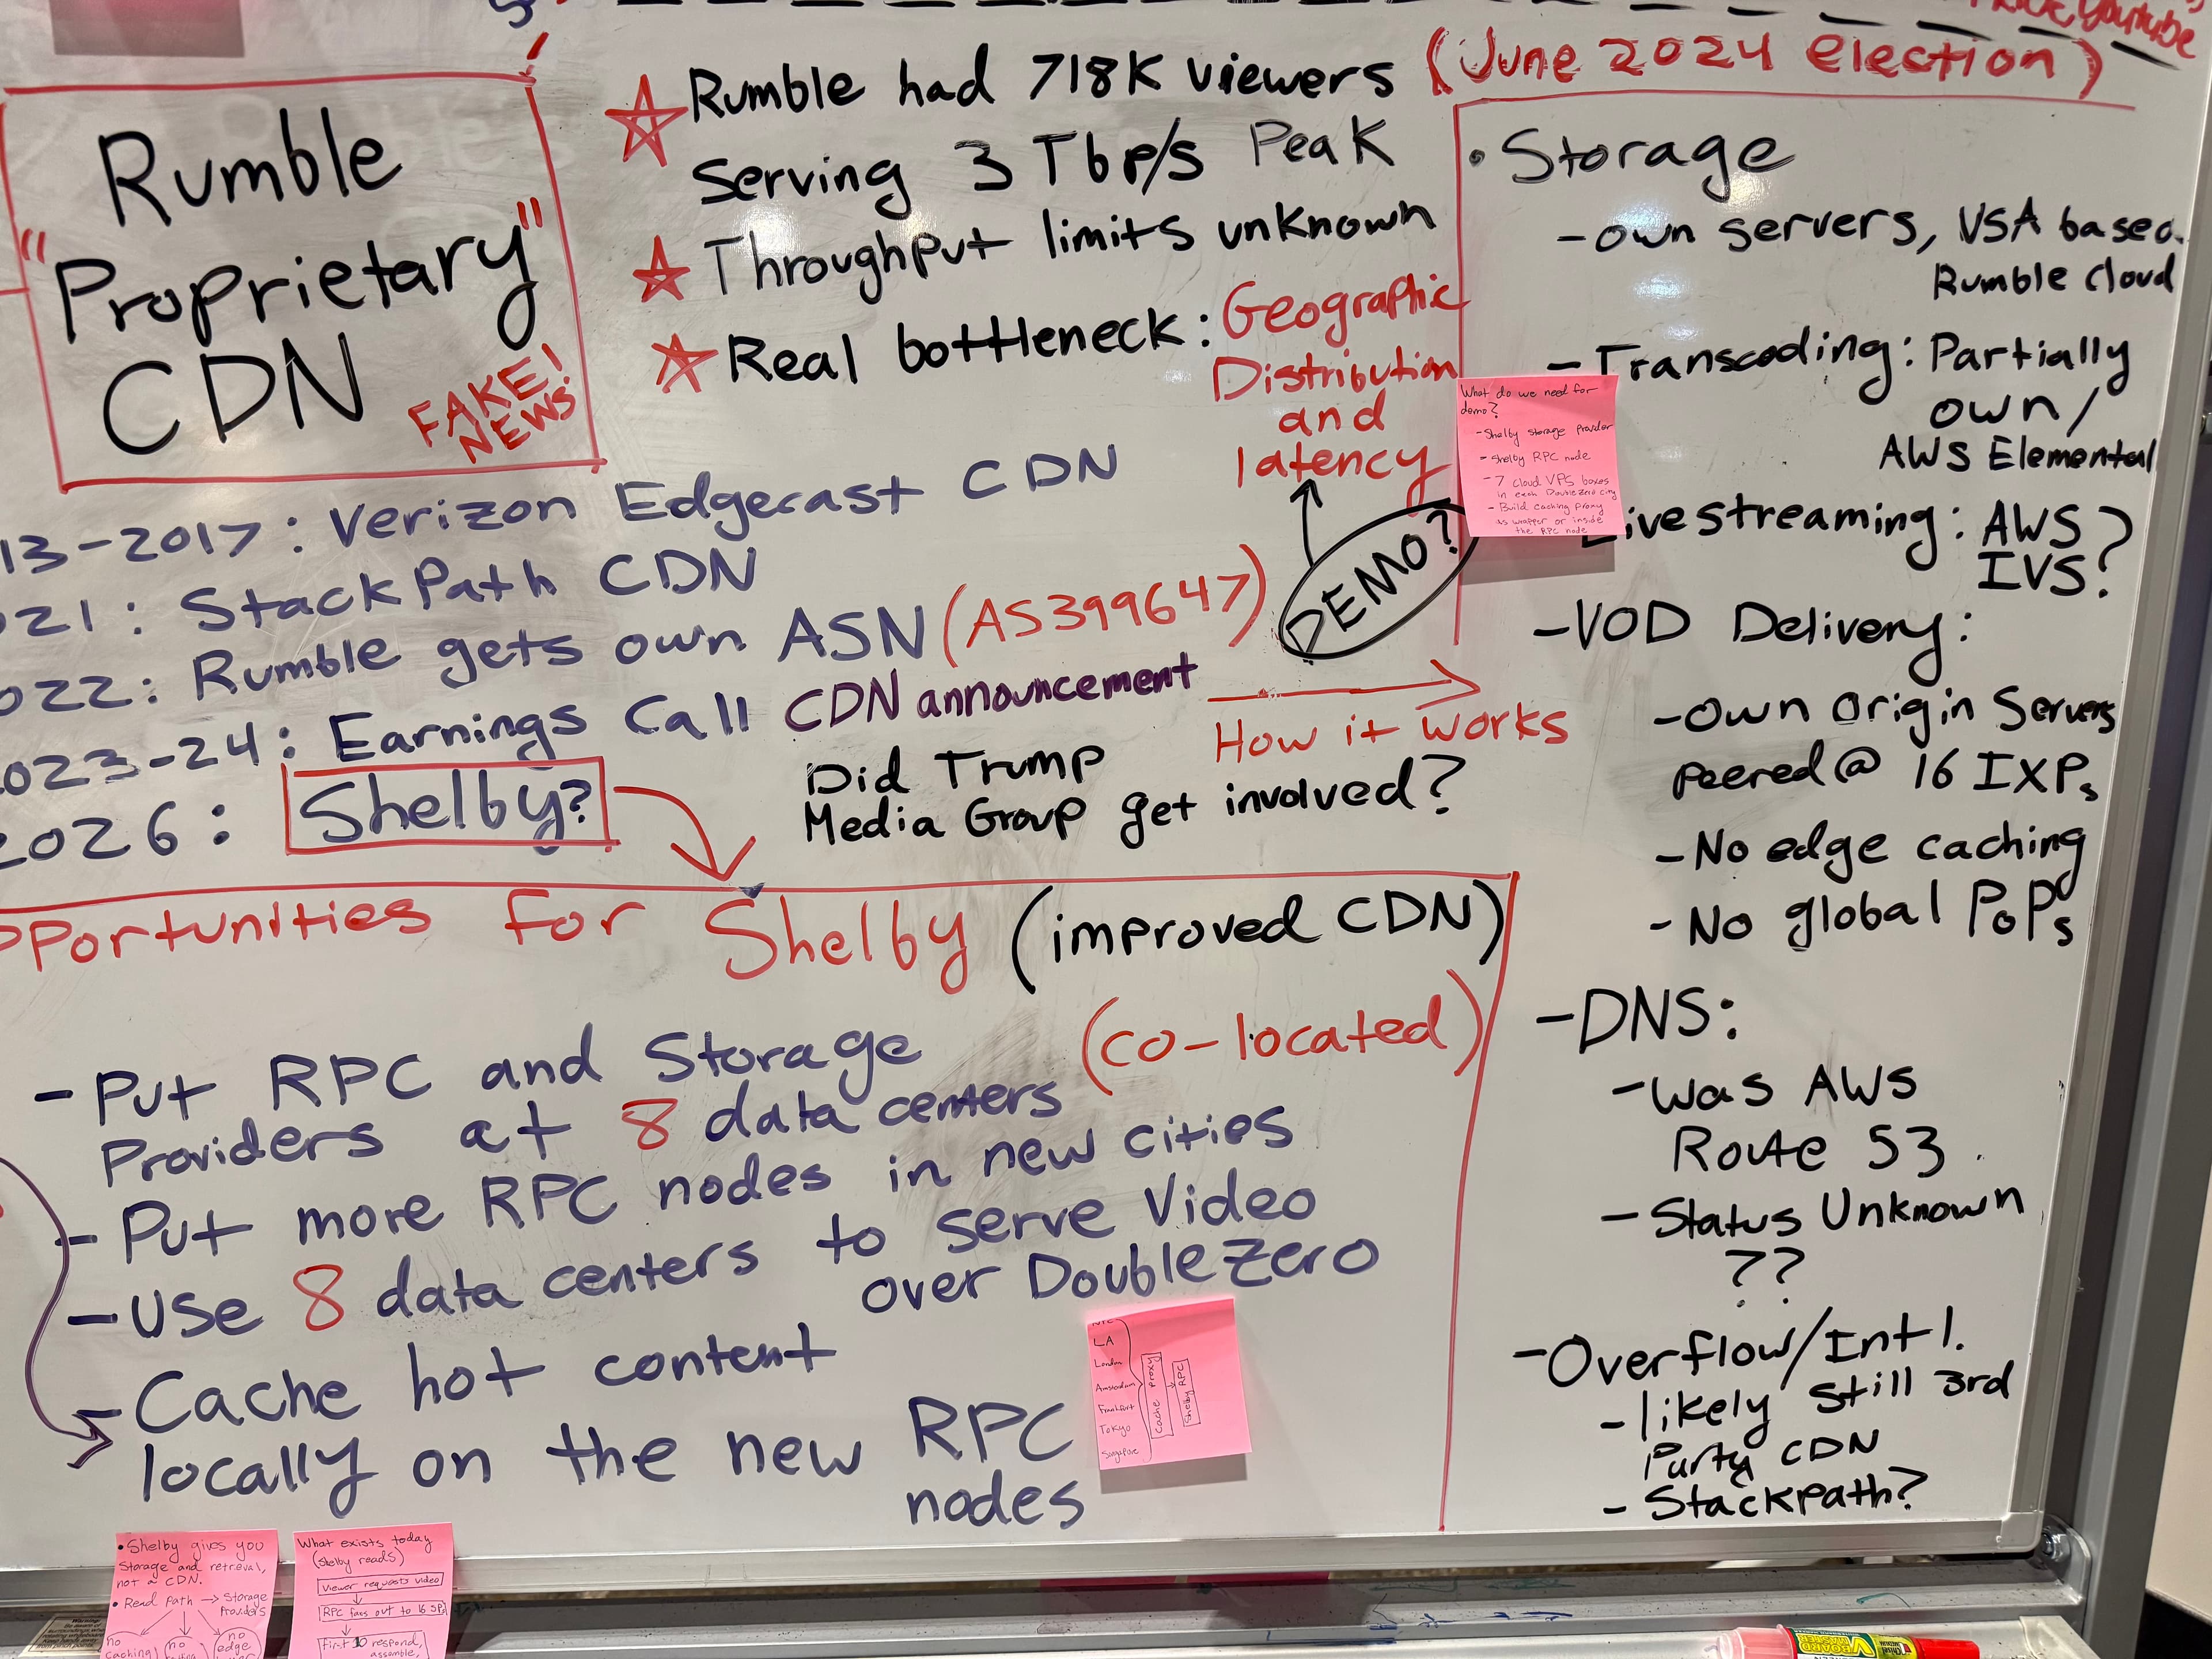 Rumble
"Proprietary"
CDN
FAKE!
NEWS!
Rumble had 718K viewers (June 2024 election)
Serving 3 Tbp/s Peak
Throughput limits unknown
Real bottleneck: Geographic
Distribution
and
latency
DEMO?
13-2017: Verizon Edgecast CDN
021: StackPath CDN
022: Rumble gets own ASN (AS399647)
2023-24: Earnings Call CDN announcement
2026: Shelby?
Did Trump
Media Group get involved?
How it works
• Storage
- own servers, VSA based
Rumble Cloud
- Transcoding: Partially
own/
AWS Elemental
Livestreaming: AWS
IVS?
- VOD Delivery:
- Own Origin Servers
peered @ 16 IXPs
- No edge caching
- No global PoPs
- DNS:
- Was AWS
Route 53
- Status Unknown
??
- Overflow/Intl.
- likely still 3rd
Party CDN
- Stackpath?
What do we need for
demo?
- Shelby Storage Provider
- Shelby RPC node
- 7 cloud VPS boxes
in each DoubleZero city
- Build caching proxy
as wrapper or inside
the RPC node
pportunities for Shelby (improved CDN)
- Put RPC and Storage (co-located)
Providers at 8 data centers
- Put more RPC nodes in new cities
- Use 8 data centers to serve Video
over DoubleZero
- Cache hot content
locally on the new RPC
nodes
NYC
LA
London
Amsterdam
Frankfurt
Tokyo
Singapore
Cache Proxy
Shelby RPC
• Shelby gives you
Storage and retrieval,
not a CDN.
• Read Path → Storage
Providers
no
caching
no
no
edge
What exists today
(Shelby reads)
Viewer requests video
RPC fans out to 16 SPs
First 10 respond,
assemble,
Youtube